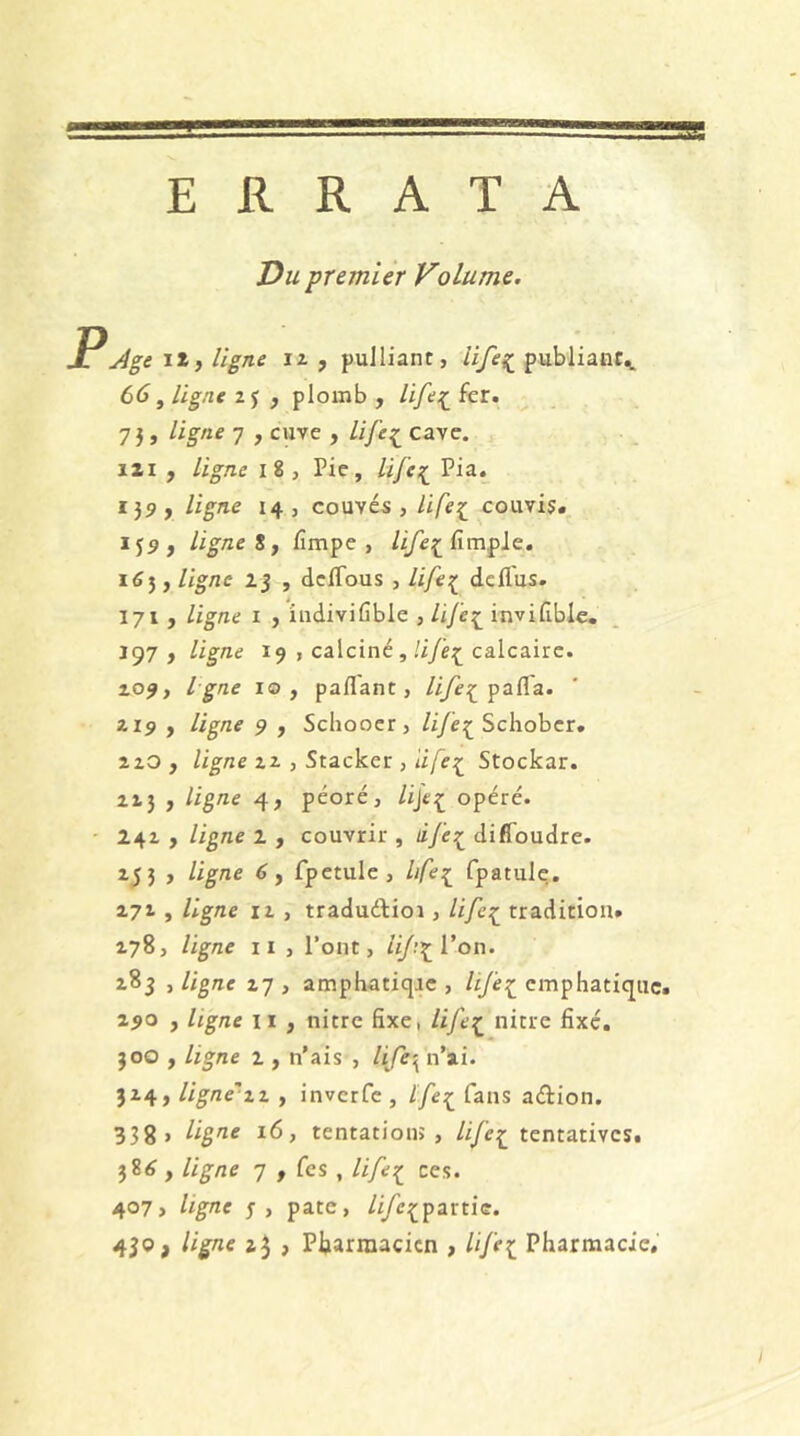 ERRATA
Du premier Volume.
PAge 12, ligne 12, pulliant, liſez publiant.
66, ligne 25, plomb, liſez fer.
73, ligne 7, cuve, liſez cave.
121, ligne 18, Pie, liſez Pia.
139, ligne 14, couvés, liſez couvis.
159, ligne 8, ſimpe, liſez ſimple.
163, ligne 23, deſſous, liſez deſſus.
171, ligne 1, indiviſible, liſez inviſible.
197, ligne 19, calciné, liſez calcaire.
209, l gne 10, paſſant, liſez paſſa.
219, ligne 9, Schooer, liſez Schober.
220, ligne 22, Stacker, liſez Stockar.
223, ligne 4, péoré, liſez opéré.
242, ligne 2, couvrir, liſez diſſoudre.
253, ligne 6, ſpetule, liſez ſpatule.
272, ligne 12, traductioı, liſez tradition.
278, ligne 11, l'ont, liſez l'on.
283, ligne 27, amphatique, liſez emphatique.
290, ligne 11, nitre fixe, liſez nitre fixé.
300, ligne 2, n'ais, liſez n'ai.
324, ligne 22, inverſe, lſez ſans action.
338, ligne 16, tentations, liſez tentatives.
386, ligne 7, ſes, liſez ces.
407, ligne 5, pate, liſez partie.
430, ligne 23, Pharmacien, liſez Pharmacie.